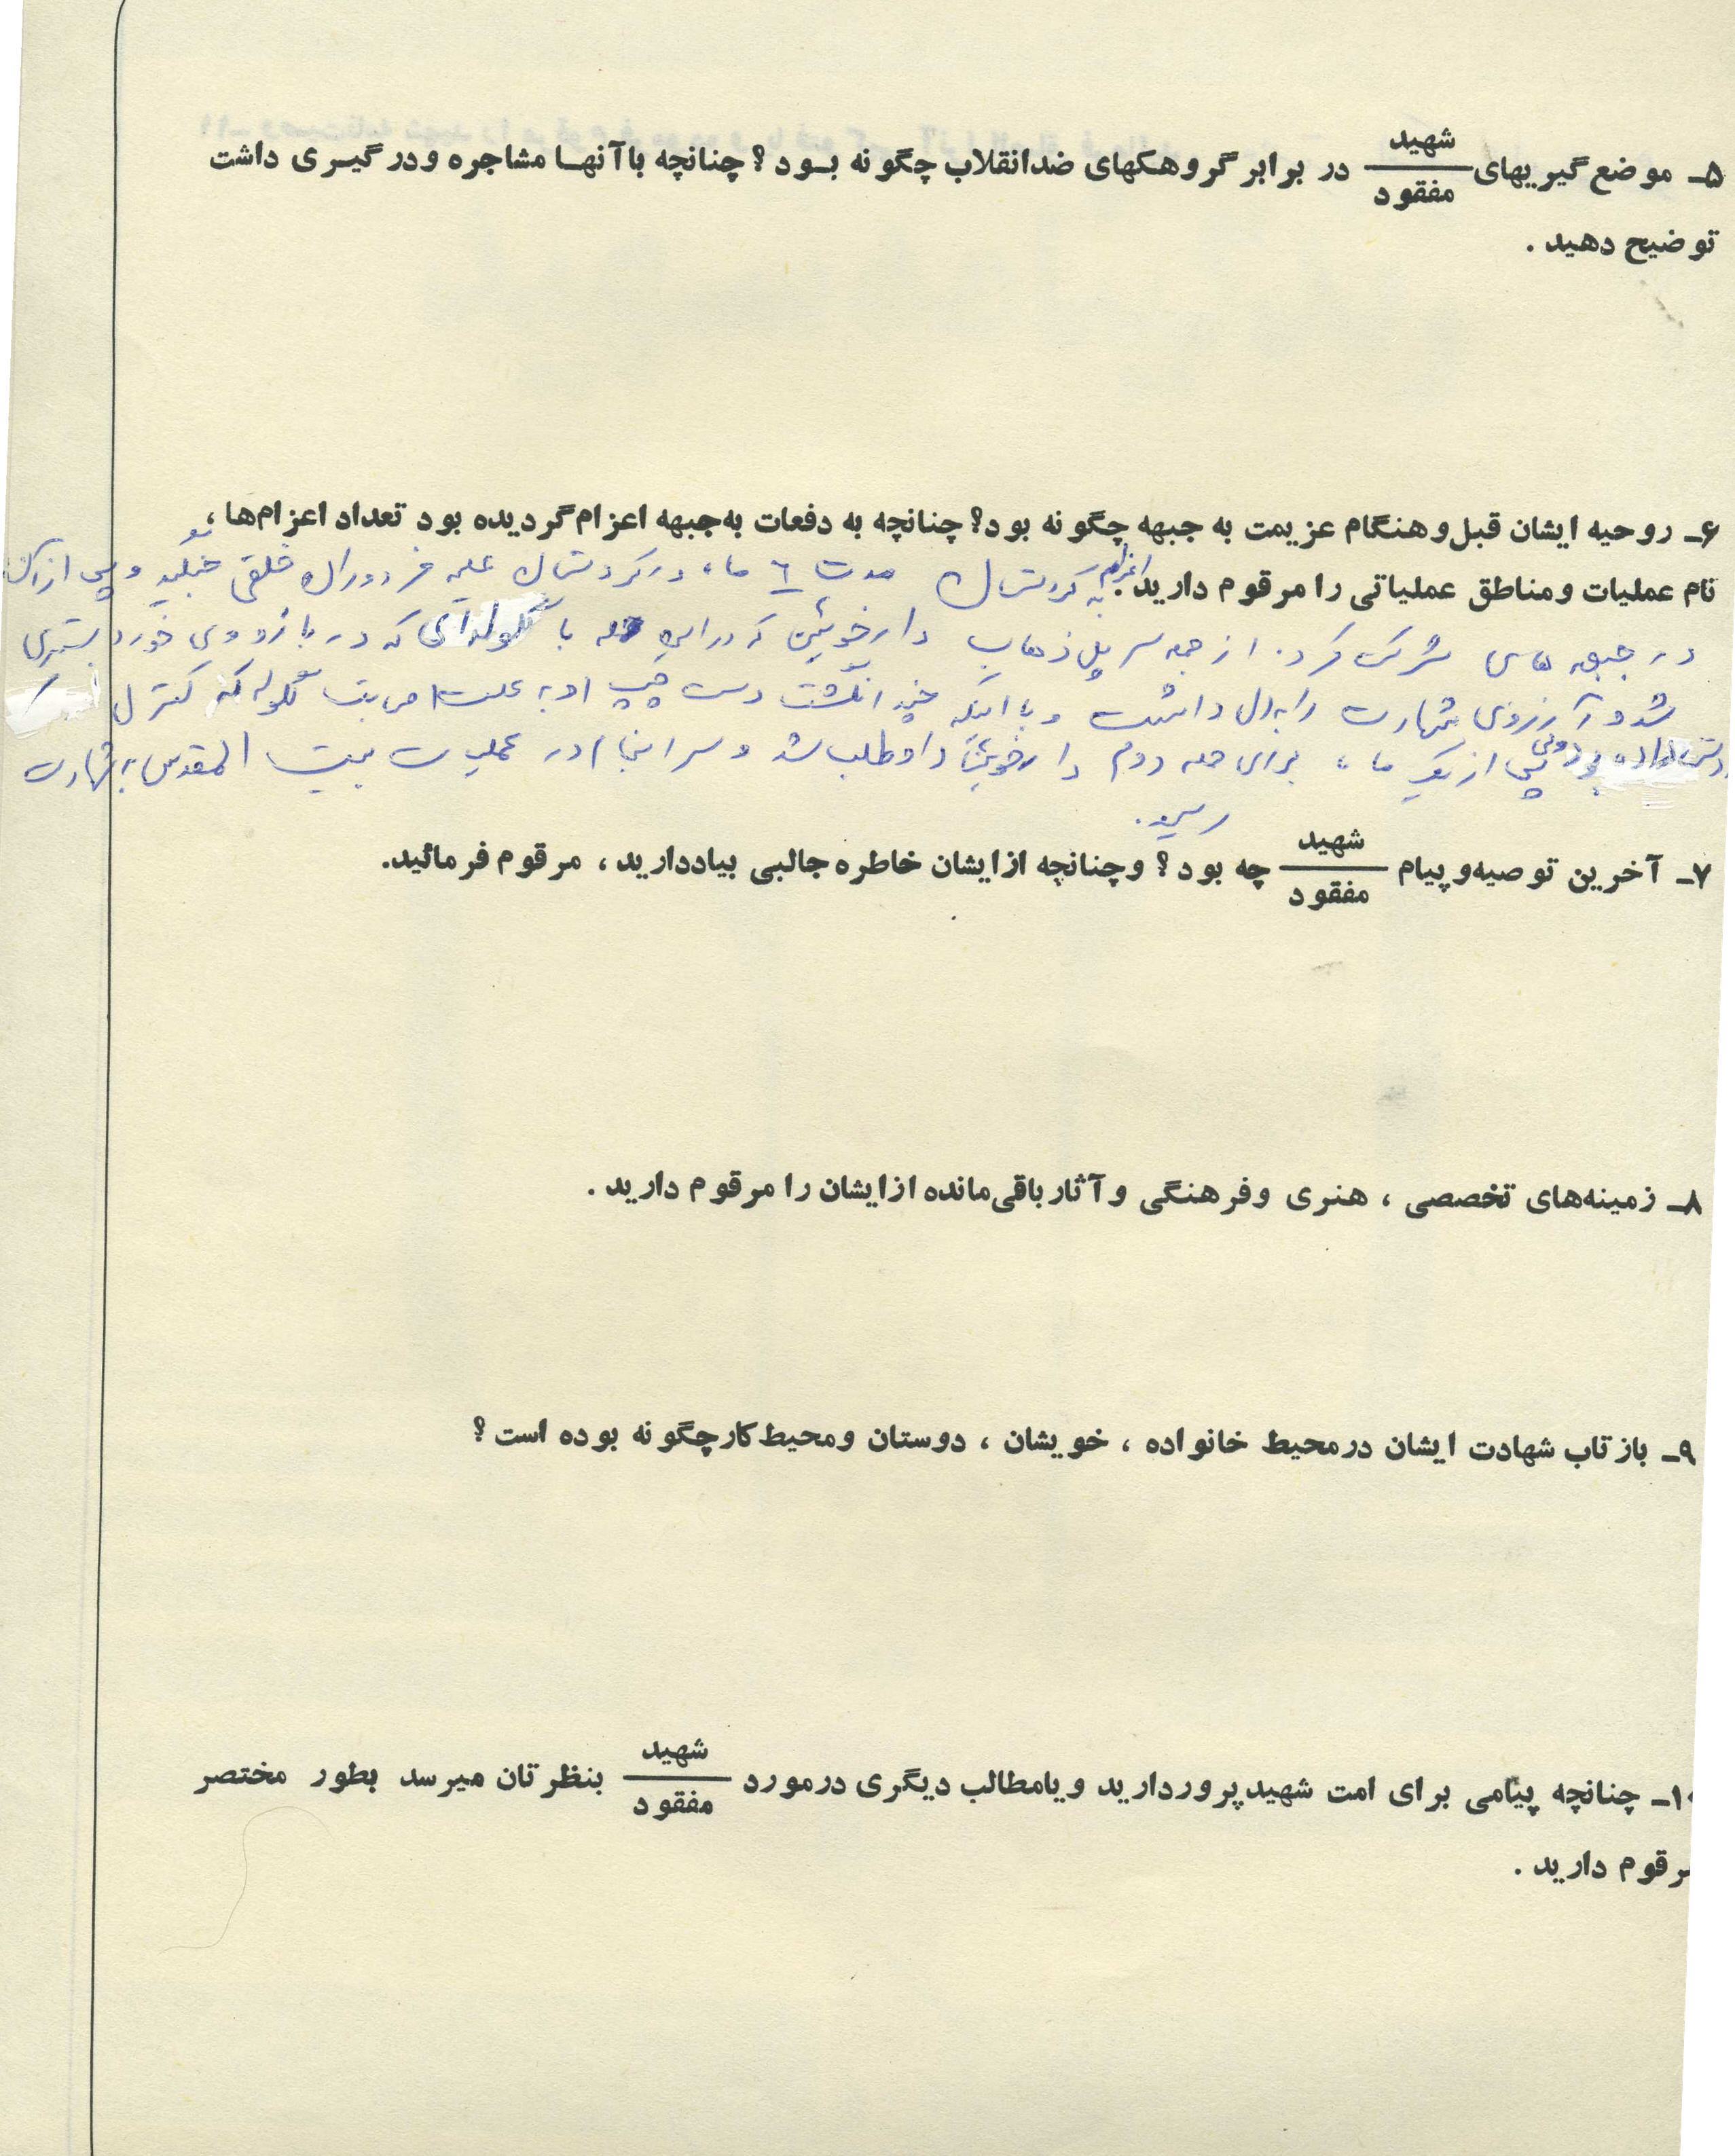 ۵ـ موضع‌گیریهای شهید/مفقود در برابر گروهکهای ضدانقلاب چگونه بـود؟ چنانچه باآنهـا مشاجره ودرگیـری داشت
توضیح دهید.
۶ـ روحیه ایشان قبل‌و هنگام عزیمت به جبهه چگونه بود؟ چنانچه به دفعات به‌جبهه اعزام گردیده بود تعداد اعزام‌ها،
نام عملیات و مناطق عملیاتی را مرقوم دارید.
اعزام به کردستان مدت ٦ ماه در کردستان علیه خلقی جنگید و پس از آن
در جبهه های شرکت کرد. از جمله سر پل ذهاب دارخوئین که در این حمله با گلوله‌ای که در بازووی خورد بستری
شد و آرزوی شهادت را به دل داشت و با اینکه چند انگشت دست چپ او به علت اصابت گلوله که کنترل
بود ولی پس از یک ماه برای حمله دوم دارخوئین داوطلب شد و سرانجام در عملیات بیت المقدس به شهادت
رسید.
۷ـ آخرین توصیه‌وپیام شهید/مفقود چه بود؟ وچنانچه ازایشان خاطره‌جالبی بیاددارید، مرقوم فرمائید.
۸ـ زمینه‌های تخصصی، هنری وفرهنگی وآثار باقی‌مانده ازایشان را مرقوم دارید.
۹ـ بازتاب شهادت ایشان درمحیط خانواده، خویشان، دوستان ومحیط کارچگونه بوده است؟
۱۰ـ چنانچه پیامی برای امت شهیدپروردارید ویامطالب دیگری درمورد شهید/مفقود بنظرتان میرسد بطور مختصر
مرقوم دارید.